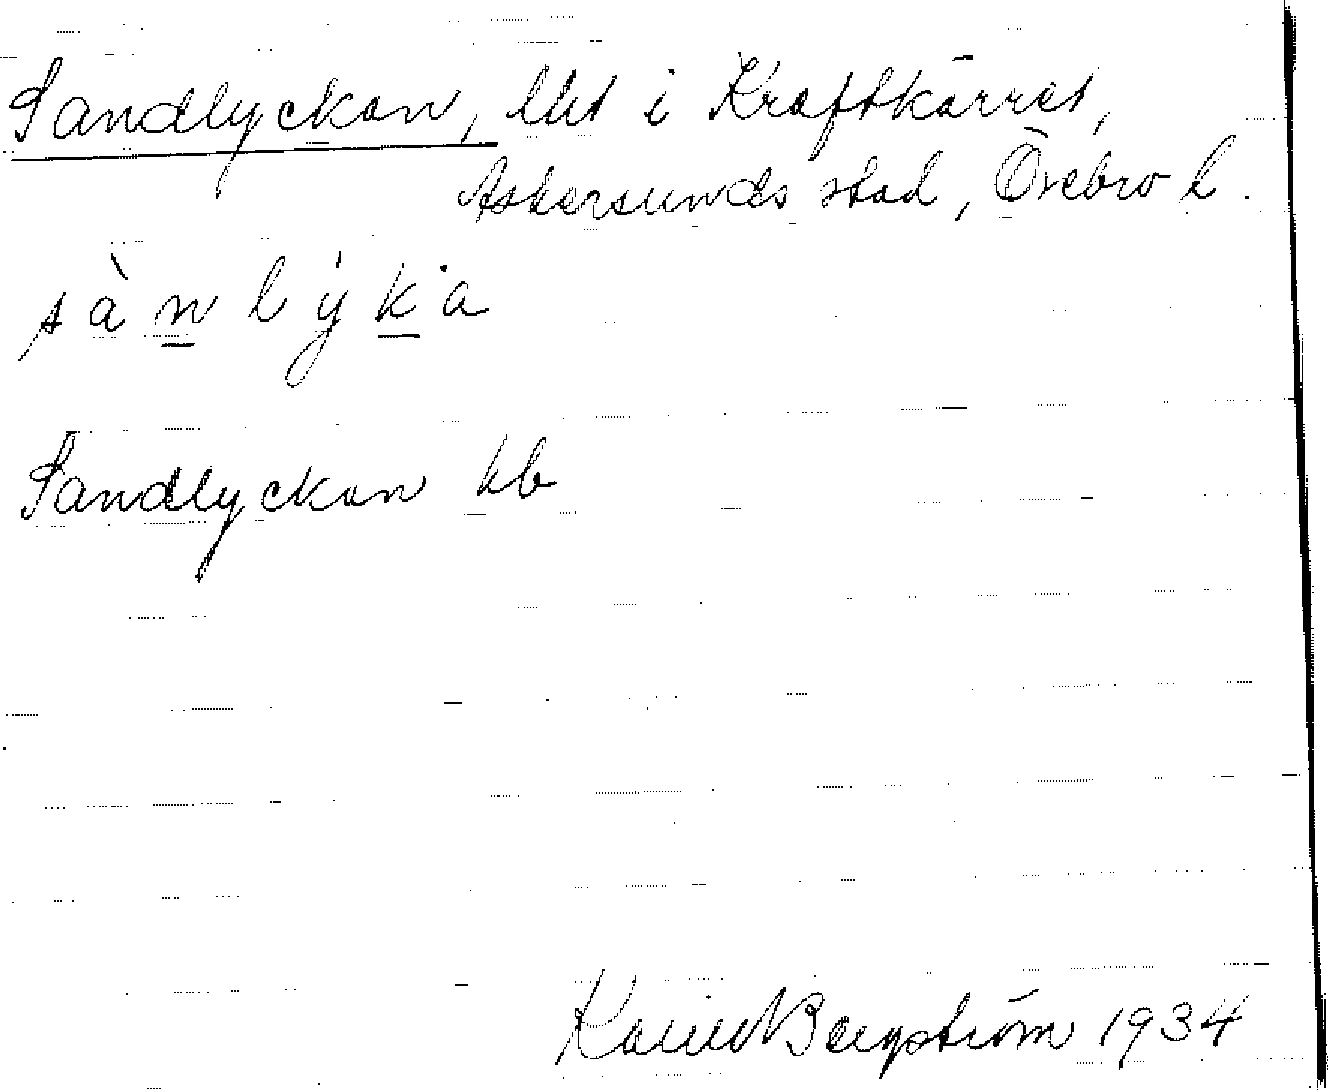 Sandlyckan, lht i Kraftkärret,
Askersunds stad, Örebro l.
sànlýka
Sandlyckan kb
Karin Bergström 1934